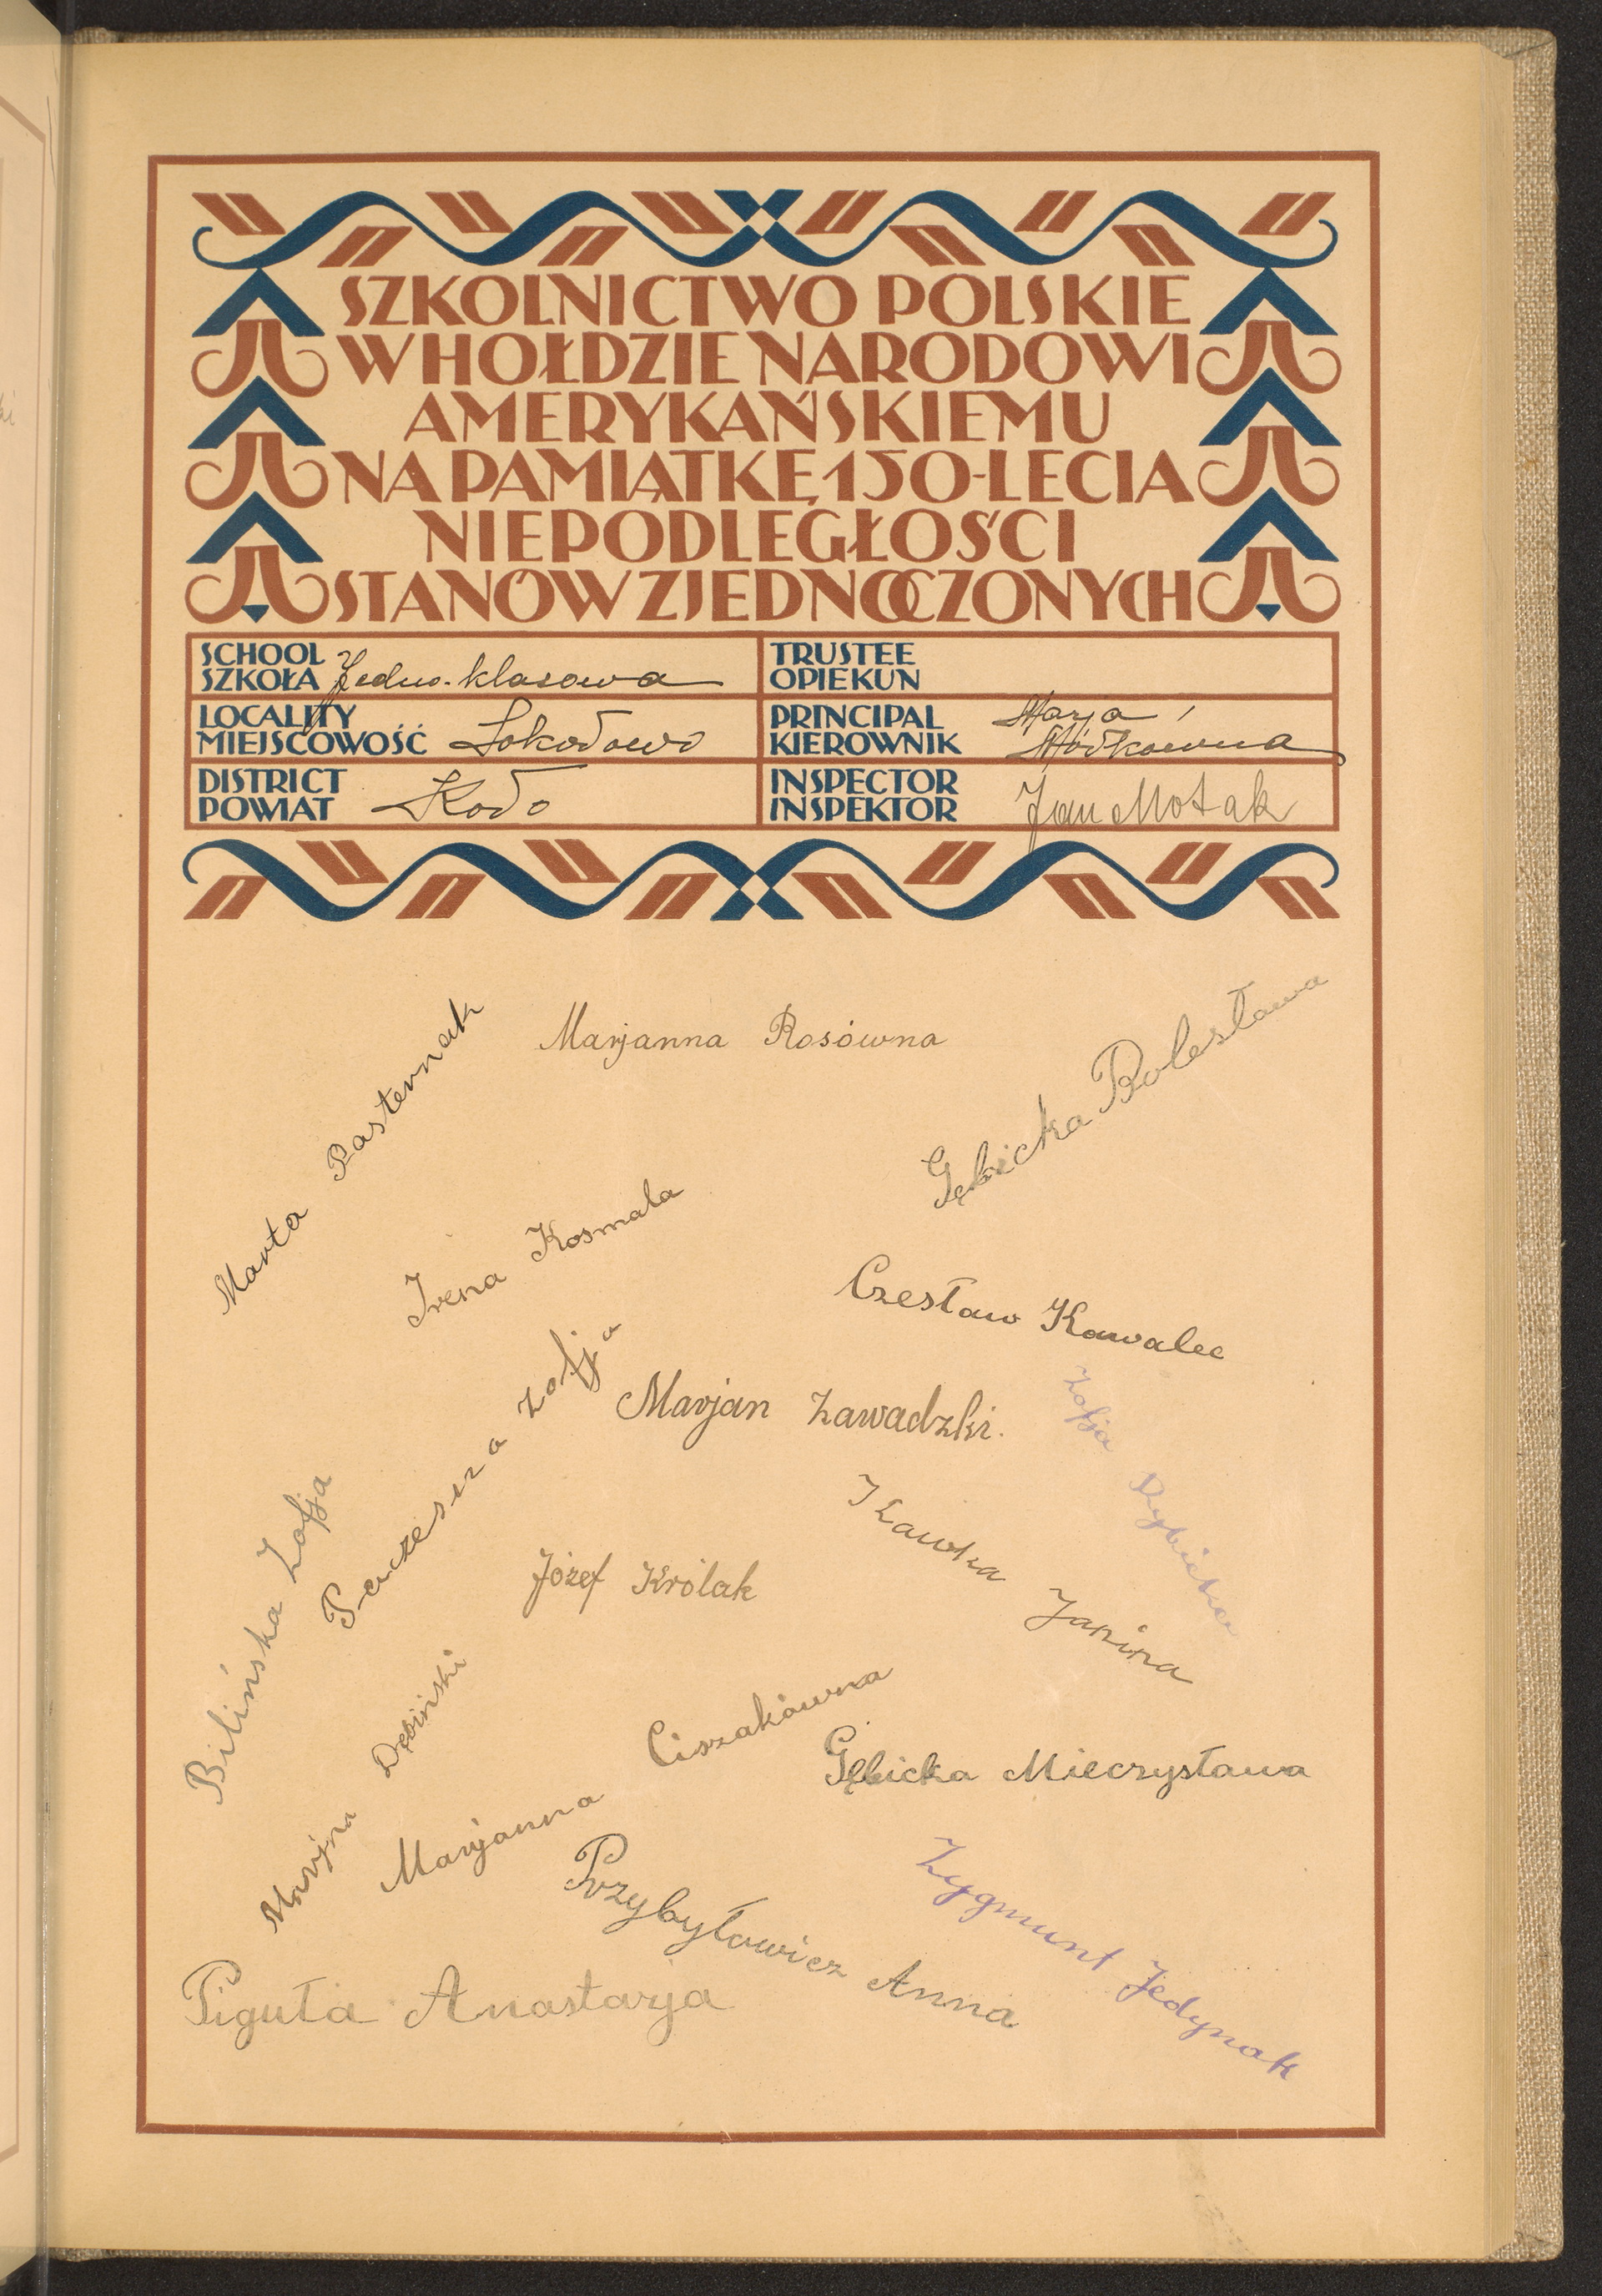 SZKOLNICTWO POLSKIE
W HOŁDZIE NARODOWI
AMERYKAŃSKIEMU
NA PAMIĄTKĘ 150-LECIA
NIEPODLEGŁOŚCI
STANÓW ZJEDNOCZONYCH
SCHOOL
SZKOŁA Jedno-klasowa
TRUSTEE
OPIEKUN
LOCALITY
MIEJSCOWOŚĆ Sokołowo
PRINCIPAL
KIEROWNIK Marja
DISTRICT
POWIAT Koło
INSPECTOR
INSPEKTOR Jan Motak
Marta Pasternak
Marjanna Rosówna
Gębicka Bolesława
Irena Kosmala
Czesław Kawalec
Paczesna Zofja
Marjan Zawadzki.
Zofja Rybicka
Bilińska Zofja
Józef Królak
Janina
Dębiński
Marjanna Ciszakówna
Gębicka Mieczysława
Przybyłowicz Anna
Zygmunt Jedynak
Piguła Anastazja